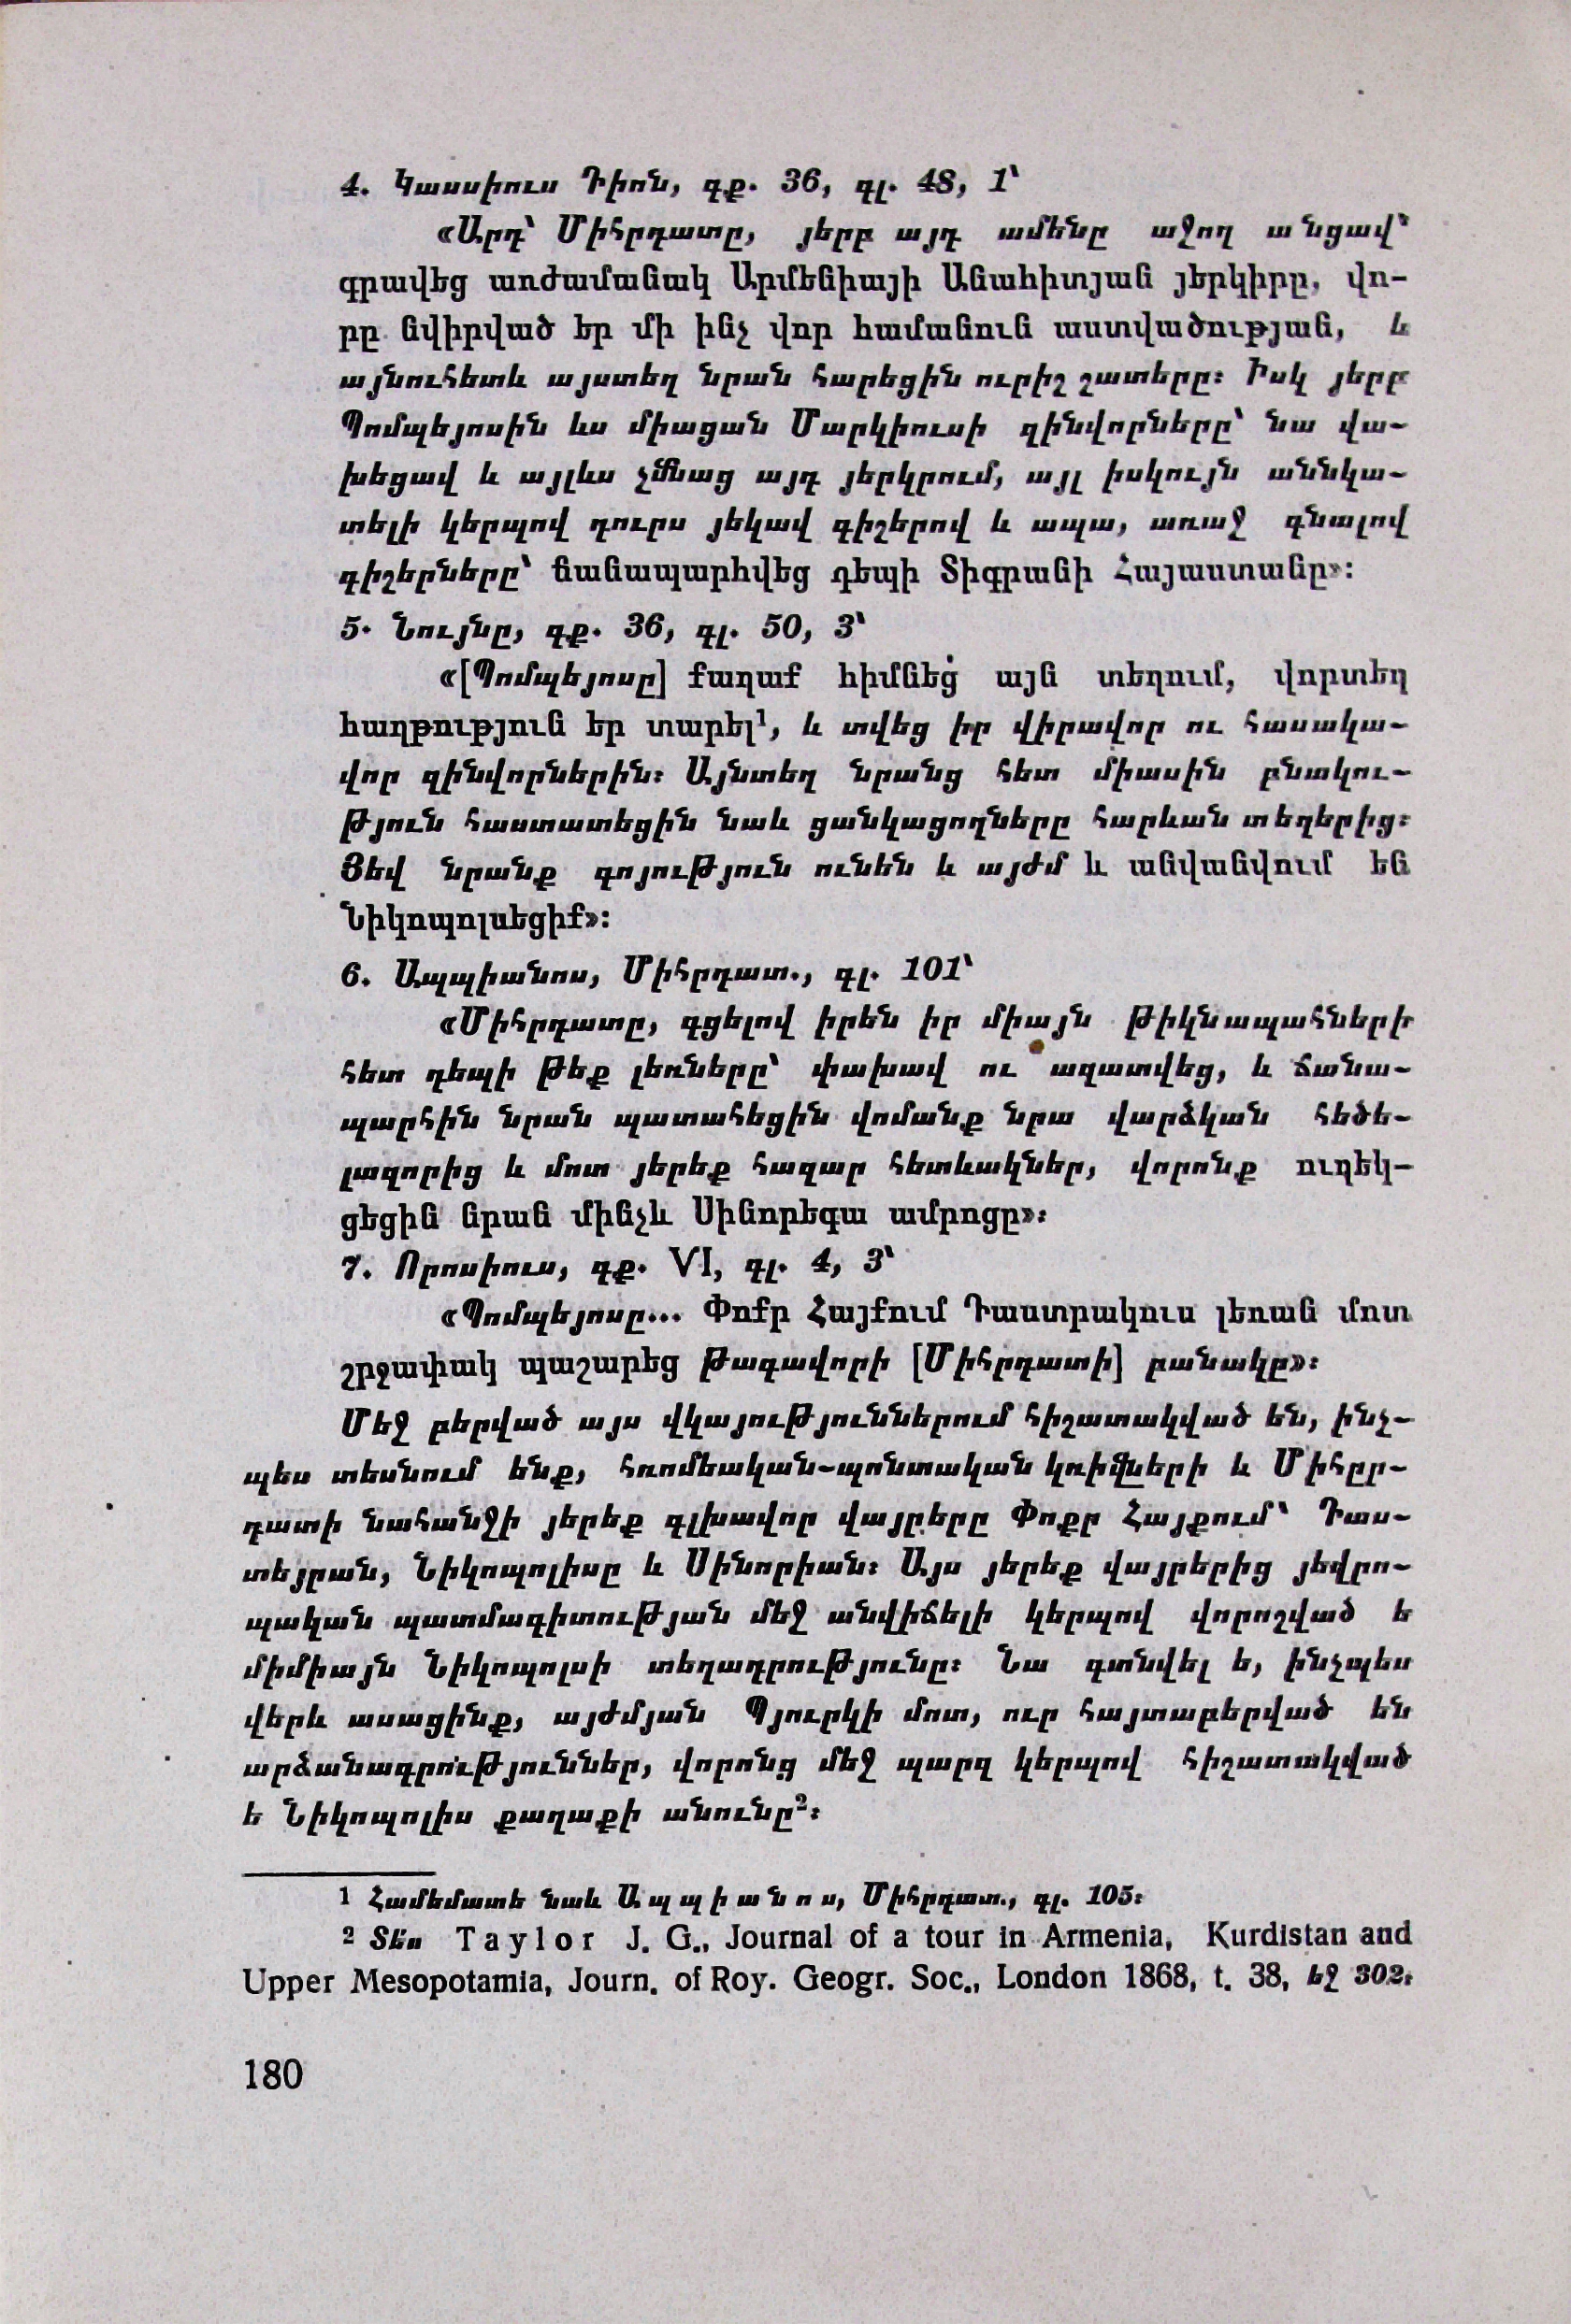 4. Կասսիուս Դիոն, գք. 36, գլ. 48, 1՝
«Արդ՝ Միհրդատը, յերբ այդ ամենը աջող անցավ՝
գրավեց առժամանակ Արմենիայի Անահիտյան յերկիրը, վո-
րը նվիրված եր մի ինչ վոր համանուն աստվածության, և
այնուհետև այստեղ նրան հարեցին ուրիշ շատերը։ Իսկ յերբ
Պոմպեյոսին ևս միացան Մարկիուսի զինվորները՝ նա վա-
խեցավ և այլևս չմնաց այդ յերկրում, այլ իսկույն աննկա-
տելի կերպով դուրս յեկավ գիշերով և ապա, առաջ գնալով
գիշերները՝ ճանապարհվեց դեպի Տիգրանի Հայաստանը»։
5. Նույնը, գք. 36, գլ. 50, 3՝
«[Պոմպեյոսը] քաղաք հիմնեց այն տեղում, վորտեղ
հաղթություն եր տարել¹, և տվեց իր վիրավոր ու հասակա-
վոր զինվորներին։ Այնտեղ նրանց հետ միասին բնակու-
թյուն հաստատեցին նաև ցանկացողները հարևան տեղերից։
Յեվ նրանք գոյություն ունեն և այժմ և անվանվում են
Նիկոպոլսեցիք»։
6. Ապպիանոս, Միհրդատ., գլ. 101՝
«Միհրդատը, գցելով իրեն իր միայն թիկնապահների
հետ դեպի թեք լեռները՝ փախավ ու ազատվեց, և ճանա-
պարհին նրան պատահեցին վոմանք նրա վարձկան հեծե-
լազորից և մոտ յերեք հազար հետևակներ, վորոնք ուղեկ-
ցեցին նրան մինչև Սինորեգա ամրոցը»։
7. Որոսիուս, գք. VI, գլ. 4, 3՝
«Պոմպեյոսը... Փոքր Հայքում Դաստրակուս լեռան մոտ
շրջափակ պաշարեց թագավորի [Միհրդատի] բանակը»։
Մեջ բերված այս վկայություններում հիշատակված են, ինչ-
պես տեսնում ենք, հռոմեական-պոնտական կռիվների և Միհըր-
դատի նահանջի յերեք գլխավոր վայրերը Փոքր Հայքում՝ Դաս-
տեյրան, Նիկոպոլիսը և Սինորիան։ Այս յերեք վայրերից յեվրո-
պական պատմագիտության մեջ անվիճելի կերպով վորոշված ե
միմիայն Նիկոպոլսի տեղադրությունը։ Նա գտնվել ե, ինչպես
վերև ասացինք, այժմյան Պյուրկի մոտ, ուր հայտաբերված են
արձանագրություններ, վորոնց մեջ պարզ կերպով հիշատակված
ե Նիկոպոլիս քաղաքի անունը²։
1 Համեմատե նաև Ապպիանոս, Միհրդատ., գլ. 105։
2 Տե՛ս Taylor J. G., Journal of a tour in Armenia, Kurdistan and
Upper Mesopotamia, Journ. of Roy. Geogr. Soc., London 1868, t. 38, եջ 302։
180